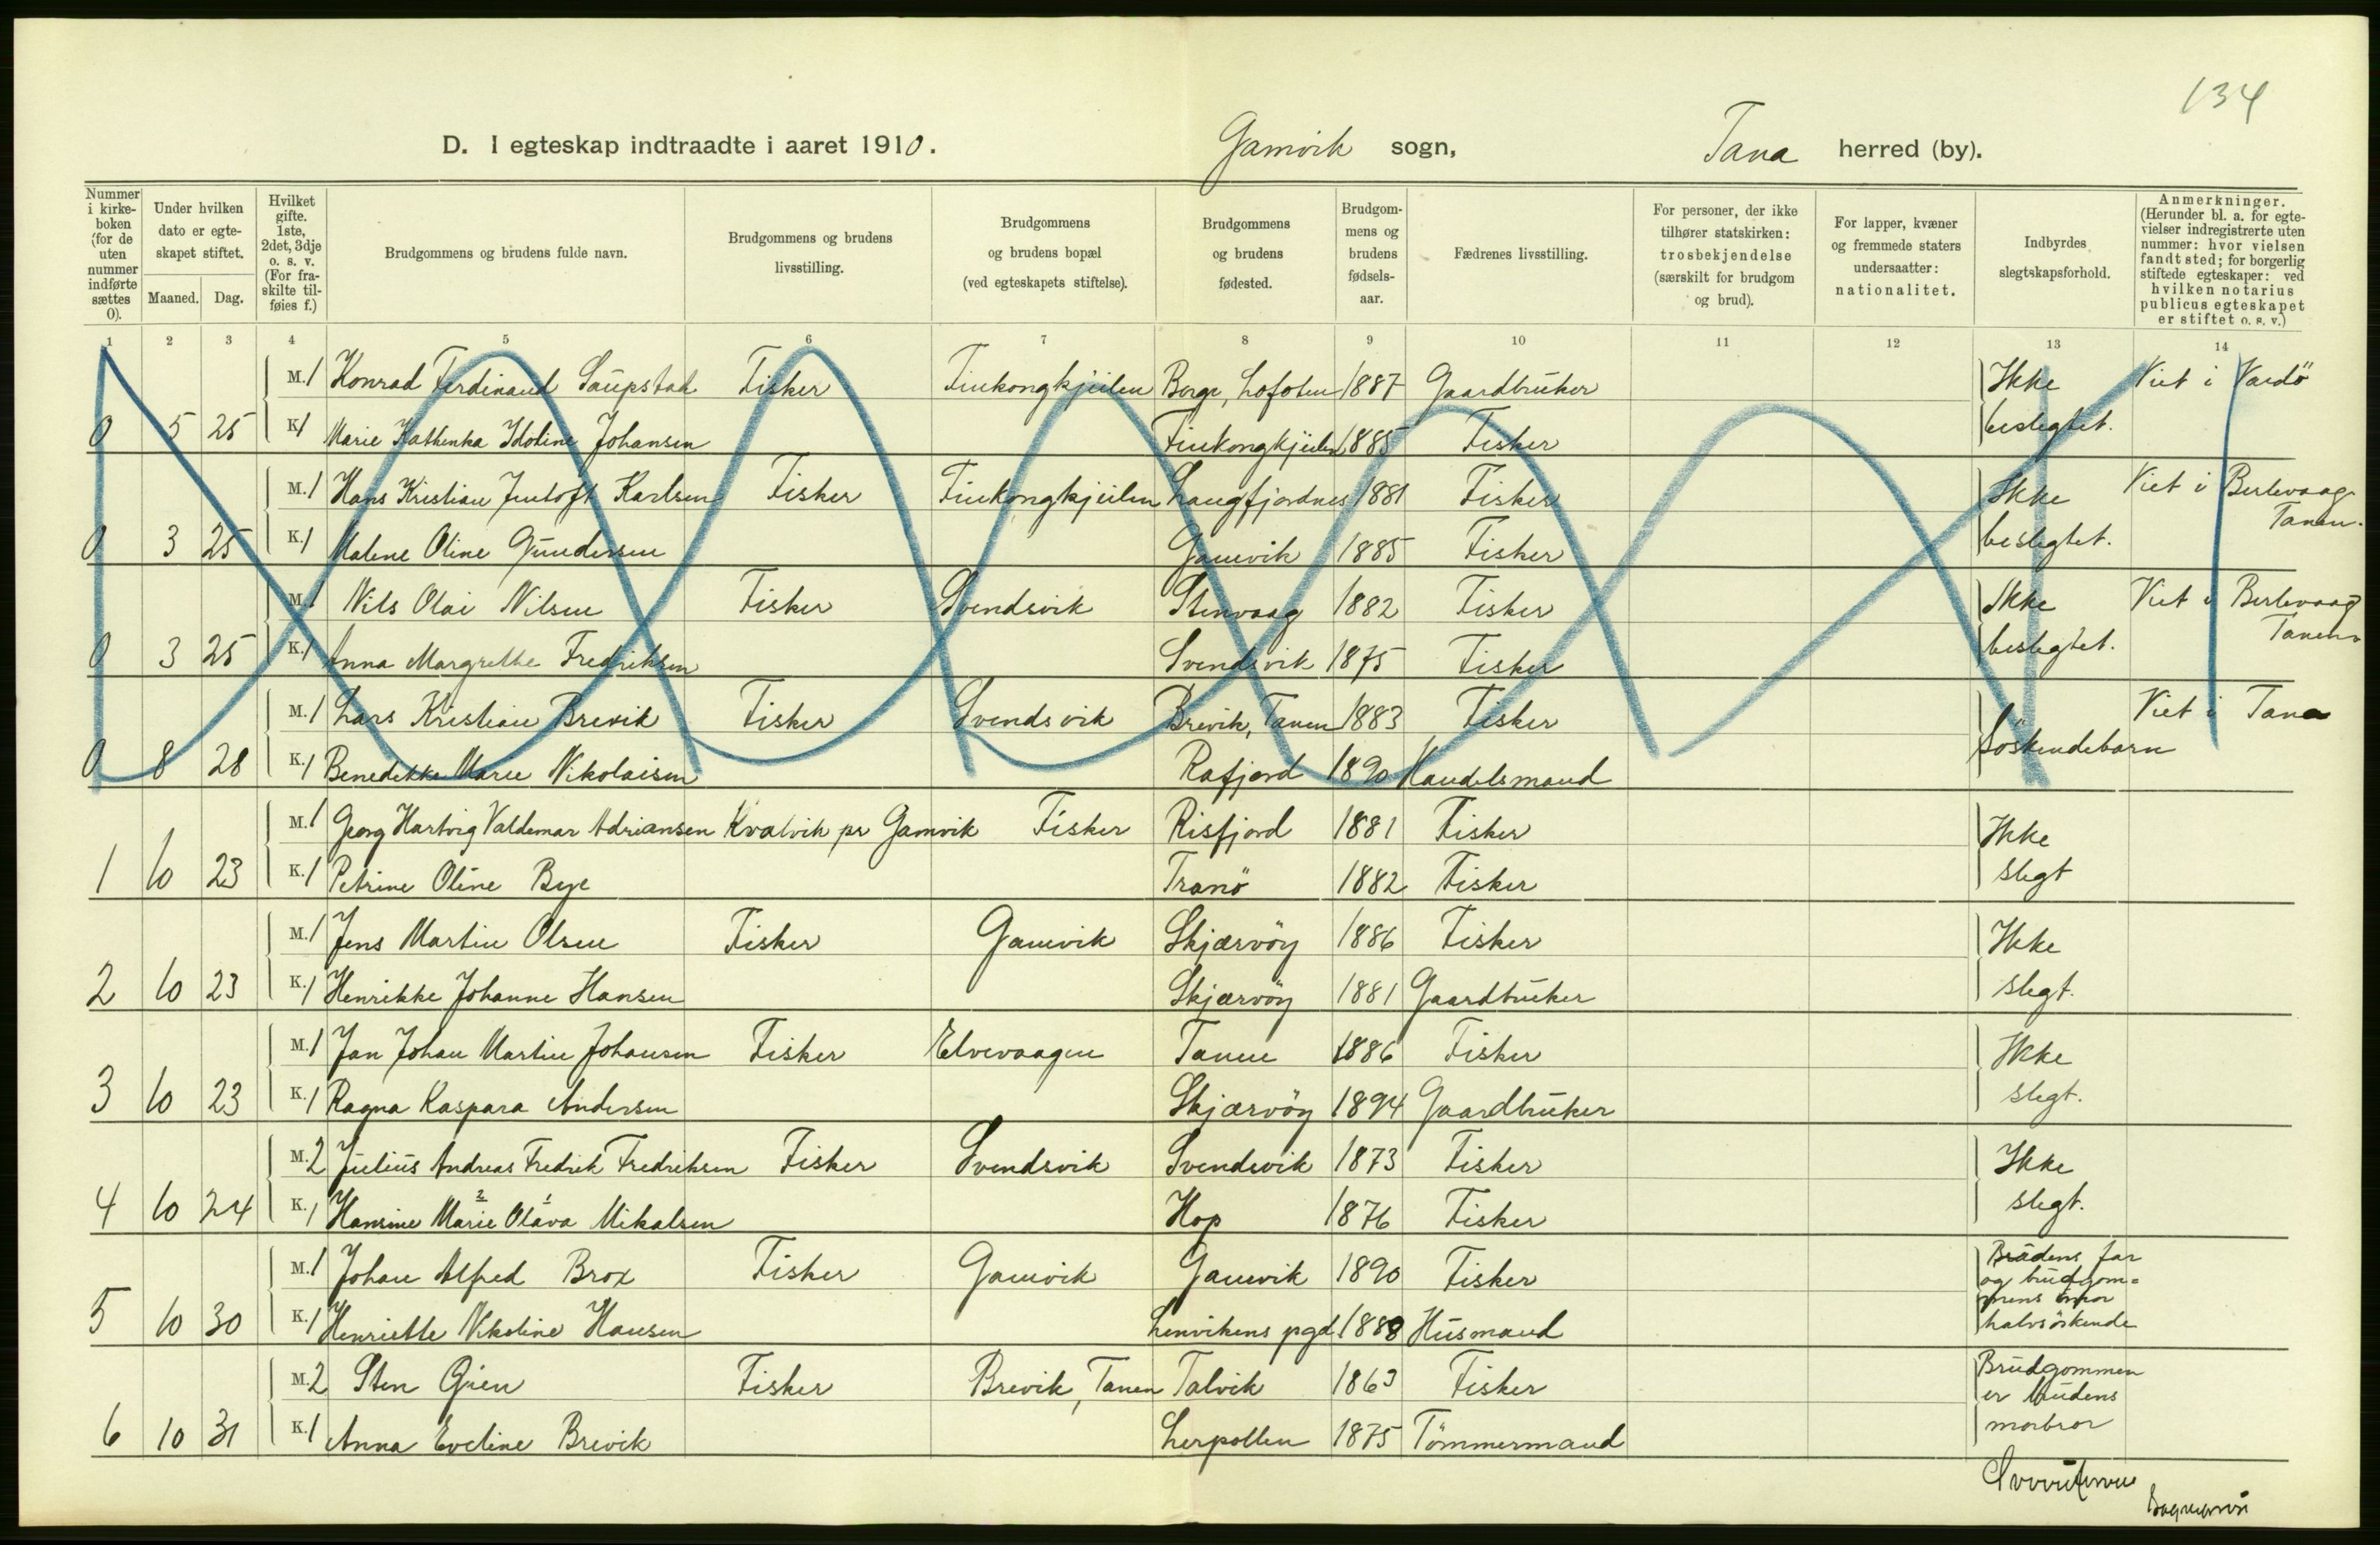 134
D. I egteskap indtraadte i aaret 1910. Gamvik sogn, Tana herred (by).
Nummer i kirke-boken (for de uten nummer indførte sættes 0).
Under hvilken dato er egte-skapet stiftet.
Maaned. Dag.
Hvilket gifte. 1ste, 2det, 3dje o. s. v. (For fra-skilte til-føies f.)
Brudgommens og brudens fulde navn.
Brudgommens og brudens livsstilling.
Brudgommens og brudens bopæl (ved egteskapets stiftelse).
Brudgommens og brudens fødested.
Brudgom-mens og brudens fødsels-aar.
Fædrenes livsstilling.
For personer, der ikke tilhører statskirken: trosbekjendelse (særskilt for brudgom og brud).
For lapper, kvæner og fremmede staters undersaatter: nationalitet.
Indbyrdes slegtskapsforhold.
Anmerkninger. (Herunder bl. a. for egte-vielser indregistrerte uten nummer: hvor vielsen fandt sted; for borgerlig stiftede egteskaper: ved hvilken notarius publicus egteskapet er stiftet o. s. v.)
1 2 3 4 5 6 7 8 9 10 11 12 13 14
M. 1 Konrad Ferdinand Saupstad Fisker Finkongkjeilen Borge, Lofoten 1887 Gaardbruker Ikke Viet i Vardö
0 5 25 K. 1 Marie Kathinka Idoline Johansen Finkongkjeilen 1885 Fisker beslegtet.
M. 1 Hans Kristian Jentoft Karlsen Fisker Finkongkjeilen Langfjordnes 1881 Fisker Ikke Viet i Berlevaag
Tanen.
0 3 25 K. 1 Malene Oline Gundersen Gamvik 1885 Fisker beslegtet.
M. 1 Nils Olai Nilsen Fisker Svendsvik Stenvaag 1882 Fisker Ikke Viet i Berlevaag
Tanen
0 3 25 K. 1 Anna Margrethe Fredriksen Svendsvik 1875 Fisker beslegtet.
M. 1 Lars Kristian Brevik Fisker Svendsvik Brevik, Tanen 1883 Fisker Viet i Tana
0 8 28 K. 1 Benedikke Marie Nikolaisen Rafjord 1890 Handelsmand Söskendebarn
M. 1 Georg Hartvig Valdemar Adriansen Kvalvik pr Gamvik Fisker Risfjord 1881 Fisker Ikke
1 10 23 K. 1 Petrine Oline Bye Tranö 1882 Fisker slegt
M. 1 Jens Martin Olsen Fisker Gamvik Skjærvöy 1886 Fisker Ikke
2 10 23 K. 1 Henrikke Johanne Hansen Skjærvöy 1881 Gaardbruker slegt.
M. 1 Jan Johan Martin Johansen Fisker Elvevaagen Tanen 1886 Fisker Ikke
3 10 23 K. 1 Ragna Kaspara Andersen Skjærvöy 1894 Gaardbruker slegt.
M. 2 Julius Andreas Fredrik Fredriksen Fisker Svendsvik Svendsvik 1873 Fisker Ikke
4 10 24 K. 1 Hansine Marie Olava Mikalsen Hop 1876 Fisker slegt.
M. 1 Johan Alfred Brox Fisker Gamvik Gamvik 1890 Fisker Brudens far
og brudgom=
5 10 30 K. 1 Henriette Nikoline Hansen Lenvikens pgd. 1888 Husmand mens mor
halvsöskende
M. 2 Sten Gien Fisker Brevik, Tanen Talvik 1863 Fisker Brudgommen
er brudens
6 10 31 K. 1 Anna Eveline Brevik Lerpollen 1875 Tömmermand morbror